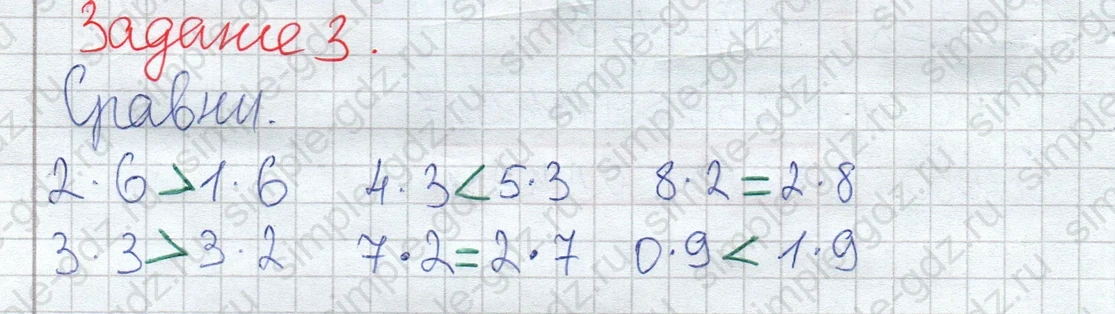 Задание 3.
Сравни.
2·6>1·6 4·3<5·3 8·2=2·8
3·3>3·2 7·2=2·7 0·9<1·9
simple-gdz.ru